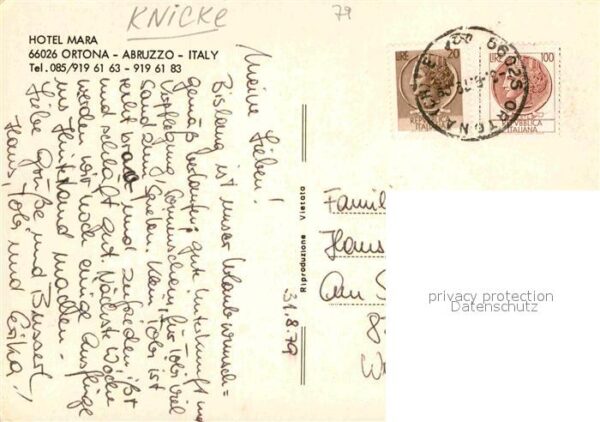 KNICKE
79
HOTEL MARA
66026 ORTONA - ABRUZZO - ITALY
Tel. 085/919 61 63 - 919 61 83
Meine Lieben!
Bislang ist unser Urlaub wunsch=
gemäß verlaufen: gute Unterkunft und
Verpflegung, Sonnenschein, für Tobi viel
Sand zum Spielen. Klein Tobi ist
recht brav und zufrieden, ißt
und schläft gut. Nächste Woche
werden wir noch einige Ausflüge
ins Hinterland machen.
Liebe Grüße und Busserl,
Hans, Tobi und Erika!
Riproduzione Vietata
31.8.79
LIRE 20
LIRE 100
REPUBBLICA
ITALIANA
66026 ORTONA (CHIETI)
Famil
Hans
Am S
8
W
privacy protection
Datenschutz